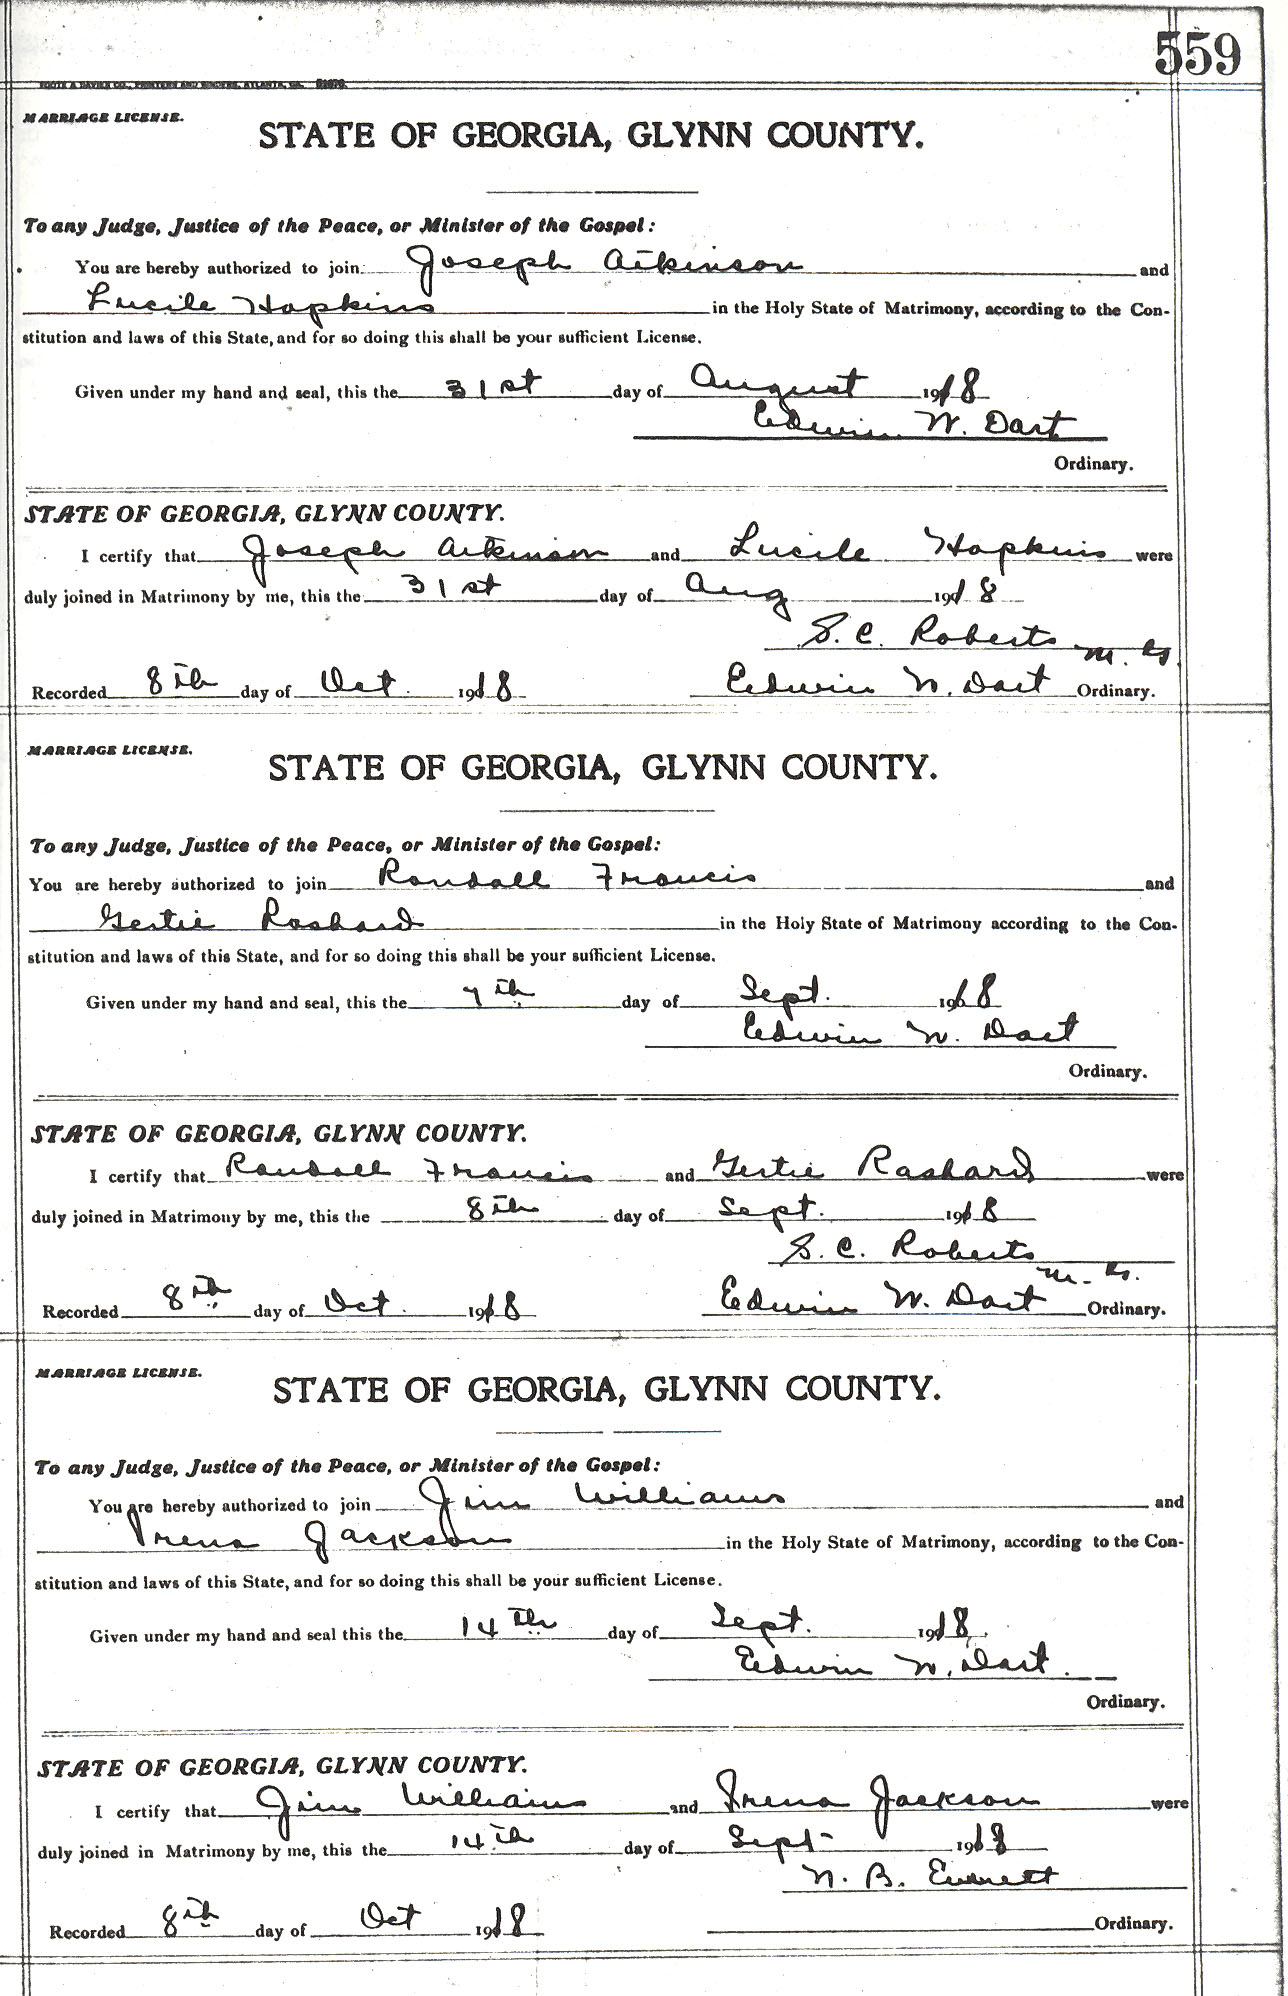 559
FOOTE & DAVIES CO., PRINTERS AND BINDERS, ATLANTA, GA.
MARRIAGE LICENSE.
STATE OF GEORGIA, GLYNN COUNTY.
To any Judge, Justice of the Peace, or Minister of the Gospel:
You are hereby authorized to join Joseph Atkinson and
Lucile Hopkins in the Holy State of Matrimony, according to the Con-
stitution and laws of this State, and for so doing this shall be your sufficient License.
Given under my hand and seal, this the 31st day of August 1918
Edwin W. Dart
Ordinary.
STATE OF GEORGIA, GLYNN COUNTY.
I certify that Joseph Atkinson and Lucile Hopkins were
duly joined in Matrimony by me, this the 31st day of Aug 1918
S. C. Roberts M. G.
Recorded 8th day of Oct. 1918 Edwin W. Dart Ordinary.
MARRIAGE LICENSE.
STATE OF GEORGIA, GLYNN COUNTY.
To any Judge, Justice of the Peace, or Minister of the Gospel:
You are hereby authorized to join Randall Francis and
Gertie Rashard in the Holy State of Matrimony according to the Con-
stitution and laws of this State, and for so doing this shall be your sufficient License.
Given under my hand and seal, this the 7th day of Sept. 1918
Edwin W. Dart
Ordinary.
STATE OF GEORGIA, GLYNN COUNTY.
I certify that Randall Francis and Gertie Rashard were
duly joined in Matrimony by me, this the 8th day of Sept. 1918
S. C. Roberts M. G.
Recorded 8th day of Oct. 1918 Edwin W. Dart Ordinary.
MARRIAGE LICENSE.
STATE OF GEORGIA, GLYNN COUNTY.
To any Judge, Justice of the Peace, or Minister of the Gospel:
You are hereby authorized to join Jim Williams and
Irena Jackson in the Holy State of Matrimony, according to the Con-
stitution and laws of this State, and for so doing this shall be your sufficient License.
Given under my hand and seal this the 14th day of Sept. 1918
Edwin W. Dart.
Ordinary.
STATE OF GEORGIA, GLYNN COUNTY.
I certify that Jim Williams and Irena Jackson were
duly joined in Matrimony by me, this the 14th day of Sept- 1918
N. B. Everett
Recorded 8th day of Oct 1918 Ordinary.